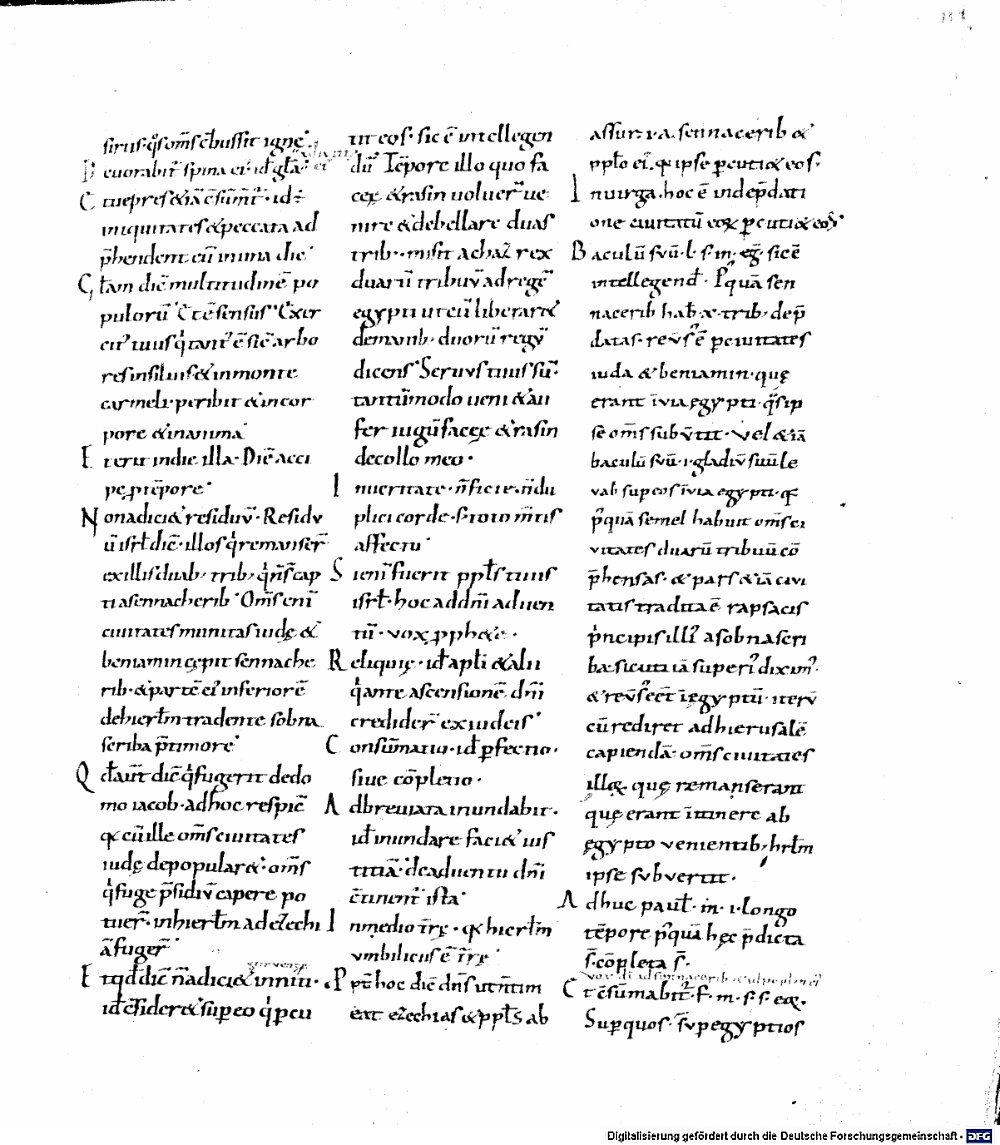 sirus · q̊s om̄s c̄bussit igne ·
D euorabit᷑ spina ei᷒ · id᷒ gl̄a ei᷒
C t uepres & iā c̄sum̄t᷑ · id ÷
iniquitates & peccata ad
p̄hendent eū in una die ·
G l̄am dic̄ multitudinē po
puloru᷑ · C̄t ē sensus · Exer
cit᷒ tuus q̇ tant᷒ ē sic̄ arbo
res in siluis & in monte
carmeli · peribit & in cor
pore & in anima ·
E t erit in die illa · Die᷑ acci
pe p̱ tēpore ·
N on adici& residuv̄ · Residv
ū isr̄l dic̄ · illos q̇ remanser᷑
ex illis duab; trib; q̇ n̄ s̄ cap
ti a sennacherib · Om̄s eni᷑
ciuitates munitas iudę &
beniamin cępit sennache
rib · & parte᷑ ei᷒ inferiore᷑
de hierl̄m tradente sobna
scriba p̱ timore ·
Q d᷒ aut̄ dic̄ q̇ fugerit de do
mo iacob · ad hoc respic̄
q̱ cū ille om̄s ciuitates
iudę depopular& · om̄s
q̇ fuge p̄sidiv̄ capere po
tuer᷑ · in hierl̄m ad ezechi
ā fuger᷑ ·
E t qd᷒ dic̄ n̄ adici& inniti ·
id ē sider& sup eo q̇ p̱cu
tit eos · sic ē intellegen
du᷑ Tēpore illo quo fa
cee & rasin uoluer᷑ ue
nire & debellare duas
trib; · misit achaz rex
duarū tribuv̄ ad rege᷑
egypti ut eū liberar&
de manib; duorū regv̄
dicens · Seruus tuus su᷑ ·
tantū modo ueni & au
fer iugū facee & rasin
de collo meo ·
I n ueritate · n̄ ficte · n̄ du
plici corde · s; toto m̄tis
affectu ·
S i eni᷑ fuerit pp̄ls tuus
isr̄l · hoc ad dn̄i aduen
tū · vox p̱ph&e ·
R eliquię · id᷒ apl̄i & alii
q̇ ante ascensionē dn̄i
credider᷑ ex iudeis ·
C onsum̄atio · id᷒ p̱fectio ·
siue cōpletio ·
A dbreuiata inundabit ·
id᷒ inundare faci& ius
titiā · de aduentu dn̄i
c̄tinent᷑ ista ·
I n medio tr̄rę · q̱ hierl̄m
vmbilicus ē tr̄rę ·
P p̄t hoc dic̄ dn̄s ut n̄ tim
eat ezechias & pp̄ls ab
assur · i · a sennacerib &
pp̄lo ei᷒ · q̱ ipse p̱cuti& eos ·
I n uirga · hoc ē in dep̄dati
one ciuitatū eoꝝ p̱cuti& eos
B aculū sv̄ū · l · s · in · eg̅ · sic ē
intellegend᷒ · P᷒quā sen
nacerib hab& · x · trib; dep̄
datas · reuers᷒ ē p̱ ciuitates
iuda & beniamin · quę
erant ī via ęgypti · q̇s ip
se om̄s subv̄tit · vel & iā
baculū sv̄ū · i · gladiv̄ suū le
vab̄ sup eos ī via egypti · q̱
p᷒quā semel habuit om̄s ci
vitates duarū tribuū cō
p̄hensas · & pars & iā civi
tatis tradita ē rapsacis
ṗncipis illi᷒ a sobna scri
ba · sicuti iā superi᷒ dixim᷒ ·
& reuers᷒ ēēt ī ęgyptū · iterv̄
cū rediret ad hierusalē
capiendā · om̄s ciuitates
illę quę remanserant
quę erant ī itinere ab
ęgypto venientib; hrl̄m
ipse subvertit ·
A dhuc paul᷒ · in · i · longo
tēpore p᷒quā hęc p̄dicta
s̄ cōpleta s̄ ·
C t c̄sum̄abit᷑ · f · m · s · s · eoꝝ ·
Sup quos · sv̄p egyptios